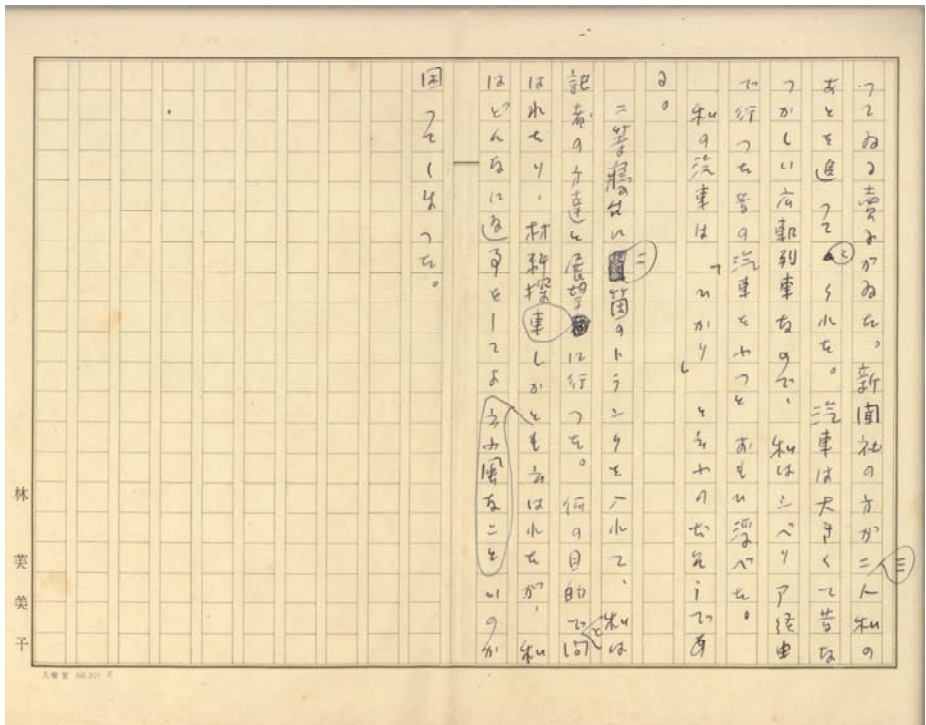 つてゐる賣子がゐた。新聞社の方が二三人私の
あとを追つてくれた。汽車は大きくて昔な
つかしい広軌列車なので、私はシベリア経由
で行つた昔の汽車をふつと おもひ浮べた。
私の汽車は「ひかり」と云ふのださうであ
る。
二等寝台に二箇のトランクを入れて、私は
記者の方達と展望車に行つた。何の目的でと問
はれたり、材料探しかとも云はれたが、私
はどんなに返事をしてよいのか
云ふ風なことを
困つてしまつた。
林芙美子